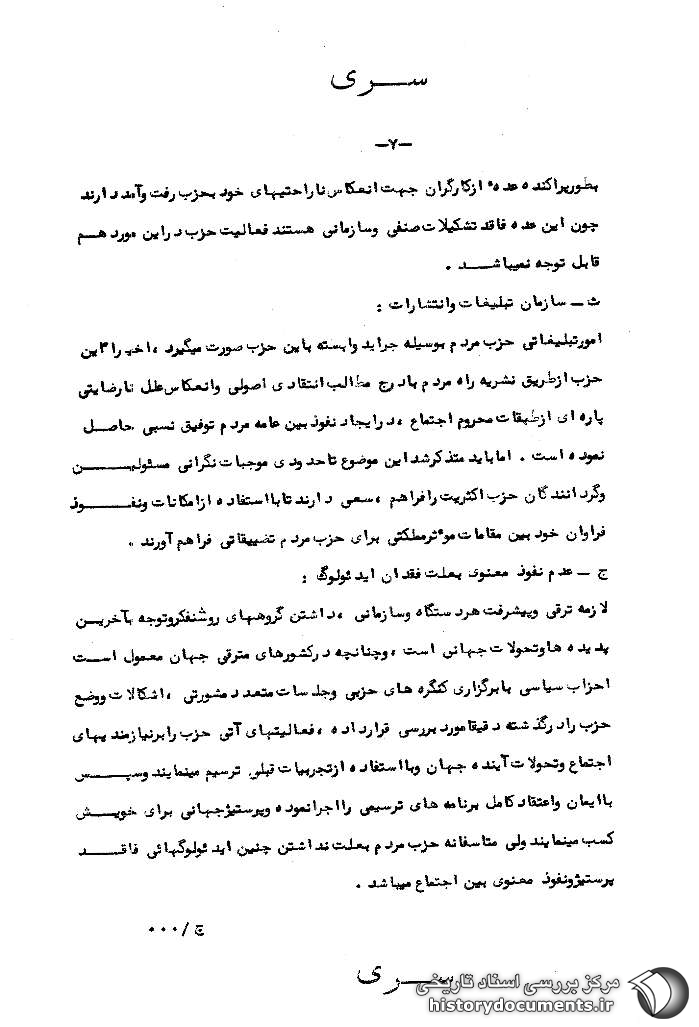 ســـری
-۷-
بطورپراکنده عده‌ء ازکارگران جهت انعکاس ناراحتیهای خود بحزب رفت وآمد دارند
چون این عده فاقد تشکیلات صنفی وسازمانی هستند فعالیت حزب دراین مورد هـم
قابل توجه نمیباشــد .
ث ــ سازمان تبلیغات وانتشارات :
امورتبلیغاتی حزب مردم بوسیله جراید وابسته باین حزب صورت میگیرد ، اخیرا" این
حزب ازطریق نشریه راه مردم بادرج مطالب انتقادی اصولی وانعکاس علل نارضایتی
پاره ای ازطبقات محروم اجتماع ، درایجاد نفوذ بین عامه مردم توفیق نسبی حاصل
نموده است . اماباید متذکرشد این موضوع تاحدودی موجبات نگرانی مسئولیـــن
وگردانندگان حزب اکثریت رافراهم ، سعی دارند تابااستفاده ازامکانات ونفــــوذ
فراوان خود بین مقامات موءثرمملکتی برای حزب مردم تضییقاتی فراهم آورند .
ج ــ عدم نفوذ معنوی بعلت فقدان ایدئولوگ :
لازمه ترقی وپیشرفت هردستگاه وسازمانی ، داشتن گروههای روشنفکروتوجه بآخریـن
پدیده هاوتحولات جهانی است ، وچنانچه درکشورهای مترقی جهان معمول اســت
احزاب سیاسی بابرگزاری کنگره های حزبی وجلسات متعدد مشورتی ، اشکالات ووضع
حزب رادرگذشته دقیقامورد بررسی قرارداده ، فعالیتهای آتی حزب رابرنیازمندیهای
اجتماع وتحولات آینده جهان وبااستفاده ازتجربیات قبلی ترسیم مینمایند وسپــس
باایمان واعتقاد کامل برنامه های ترسیمی رااجرانموده وپرستیژجهانی برای خویــش
کسب مینمایند ولی متاسفانه حزب مردم بعلت نداشتن چنین ایدئولوگهائی فاقــــد
پرستیژونفوذ معنوی بین اجتماع میباشد .
چ / ۰۰۰
ســـری
مرکز بررسی اسناد تاریخی
historydocuments.ir